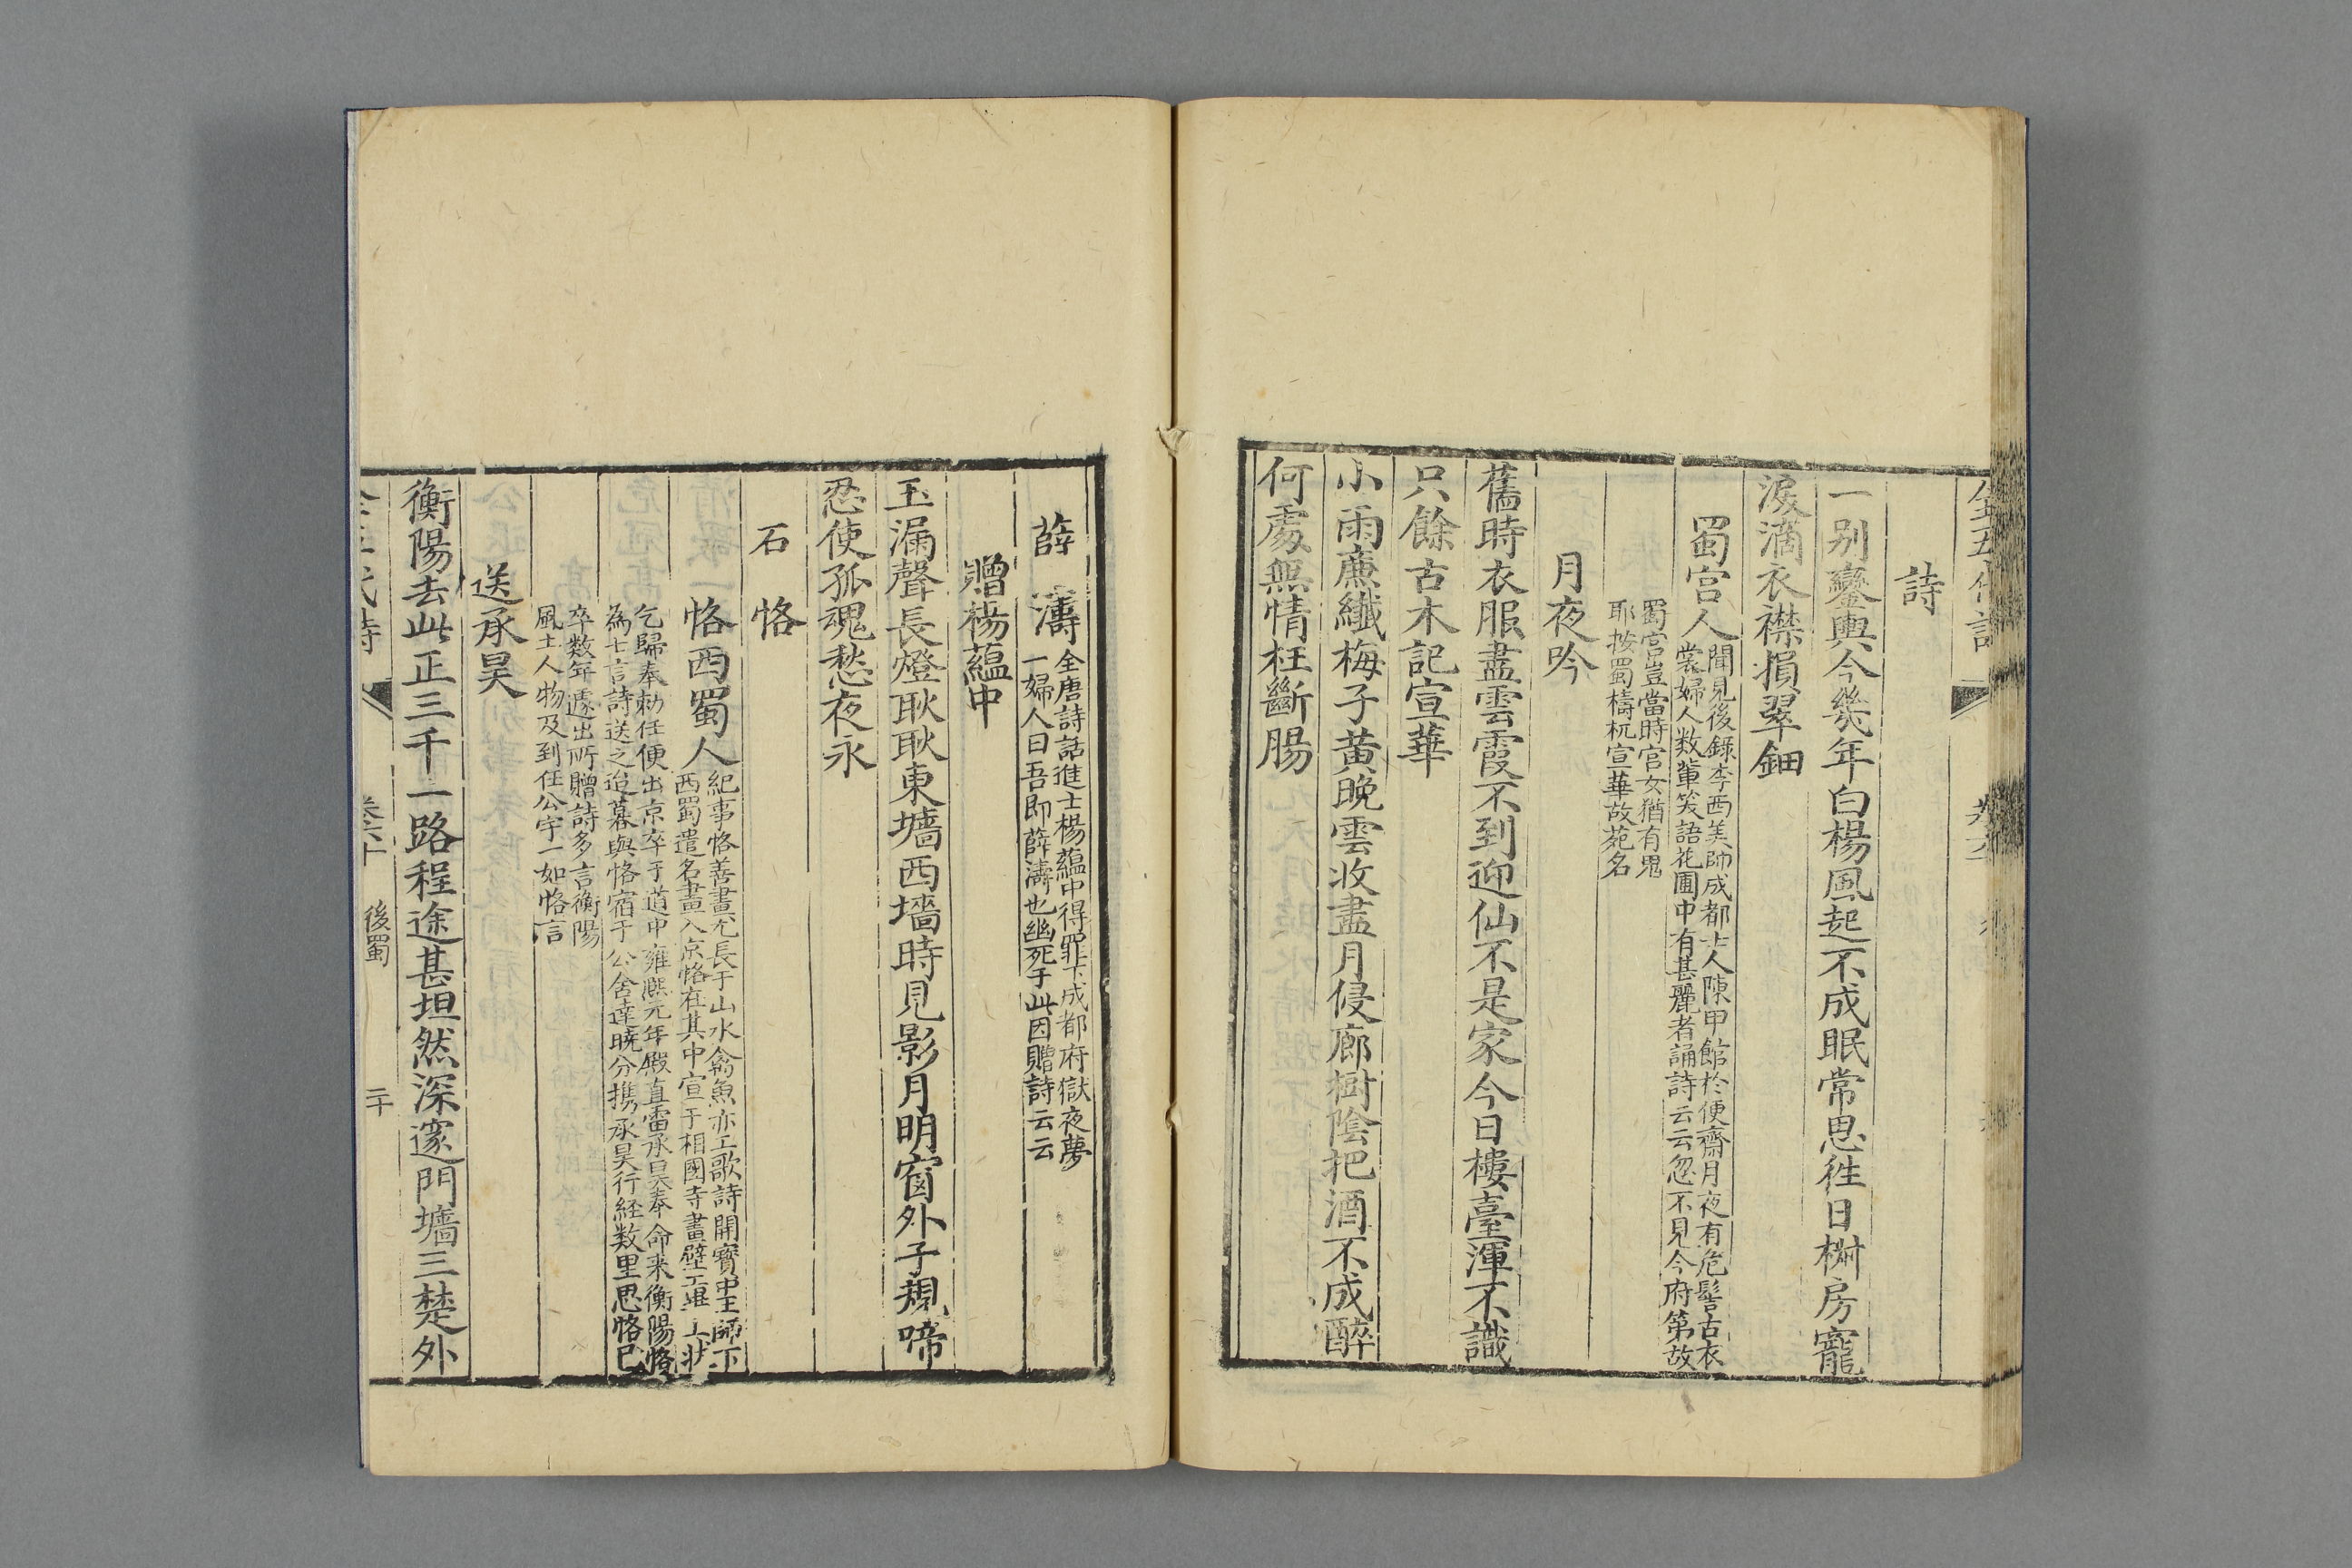 詩
一别鑾輿今幾年白楊風起不成眠常思徃日樹房寵
淚滴衣襟損翠鈿
蜀宫人
聞見後錄李西美帥成都士人陳甲館於便齋月夜有危髻古衣
裳婦人数軰笑語花圃中有甚麗者誦詩云云忽不見今府第故
蜀宫豈當時宫女猶有鬼
耶按蜀檮杌宣華故苑名
月夜吟
舊時衣服盡雲霞不到迎仙不是家今日樓臺渾不識
只餘古木記宣華
小雨廉纖梅子黄晚雲收盡月侵廊樹陰把酒不成醉
何處無情枉斷腸
薛濤
全唐詩話進士楊蘊中得罪下成都府獄夜夢
一婦人曰吾即薛濤也幽死于此因贈詩云云
贈楊蘊中
玉漏聲長燈耿耿東墻西墻時見影月明窗外子規啼
忍使孤魂愁夜永
石恪
恪西蜀人
紀事恪善畫尤長于山水禽魚亦工歌詩開寳中王師下
西蜀遣名畫入京恪在其中宣于相國寺畫壁工畢上狀
乞歸奉勅任便出京卒于道中雍熈元年殿直雷承昊奉命来衡陽恪
為七言詩送之追暮與恪宿于公舍達曉分携承昊行経数里思恪已
卒数年遽出所贈詩多言衡陽
風土人物及到任公宇一如恪言
送承昊
衡陽去此正三千一路程途甚坦然深邃門墻三楚外
後蜀
二十